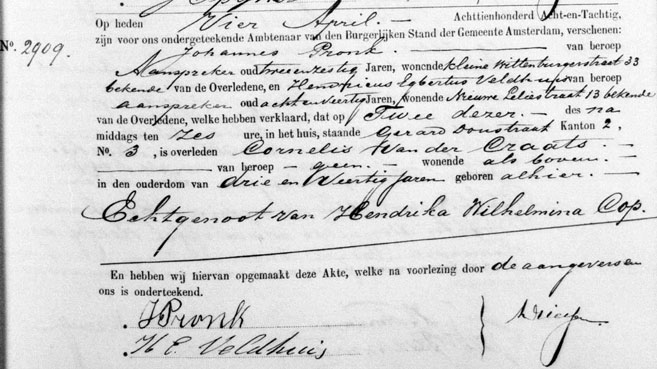 Op heden Vier April. Achttienhonderd Acht-en-Tachtig,
Nº. 2909. zijn voor ons ondergeteekende Ambtenaar van den Burgerlijken Stand der Gemeente Amsterdam, verschenen:
Johannes Pronk. van beroep
Aanspreker oud tweeenzestig Jaren, wonende kleine Wittenburgerstraat 33
bekende van de Overledene, en Hendricus Egbertus Veldhuis van beroep
aanspreker oud achtenveertig Jaren, wonende Nieuwe Leliestraat 13 bekende
van de Overledene, welke hebben verklaard, dat op Twee dezer. des na
middags ten Zes ure, in het huis, staande Gerard Doustraat Kanton 2,
No. 3, is overleden Cornelis Van der Craats.
van beroep geen. wonende als boven.
in den ouderdom van drie en Veertig Jaren geboren alhier.
Echtgenoot van Hendrika Wilhelmina Cop.
En hebben wij hiervan opgemaakt deze Akte, welke na voorlezing door de aangevers en
ons is onderteekend.
J Pronk
H E. Veldhuis